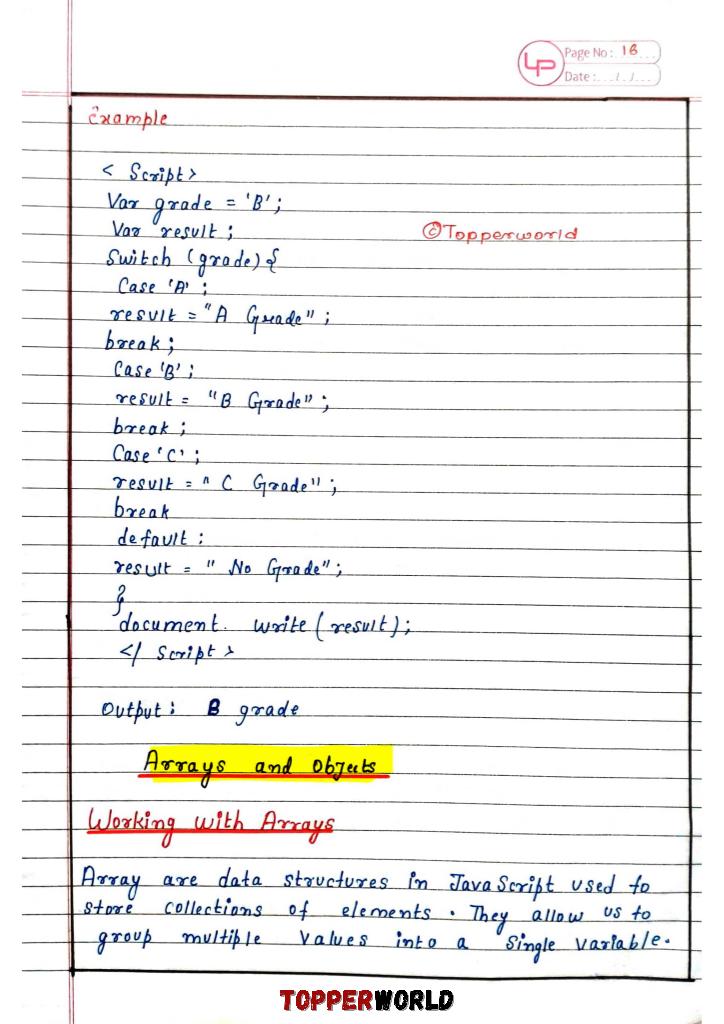 LP
Page No: 18
Date: ../../...
Example
< Script>
Var grade = 'B';
Var result;
©Topperworld
Switch (grade) {
Case 'A' ;
result = "A Grade" ;
break ;
Case 'B' ;
result = "B Grade" ;
break ;
Case 'C' ;
result = " C Grade" ;
break
default :
result = " No Grade" ;
}
document. write ( result);
</ Script >
Output : B grade
Arrays and Objects
Working with Arrays
Array are data structures in JavaScript used to
store collections of elements . They allow us to
group multiple values into a Single variable.
TOPPERWORLD